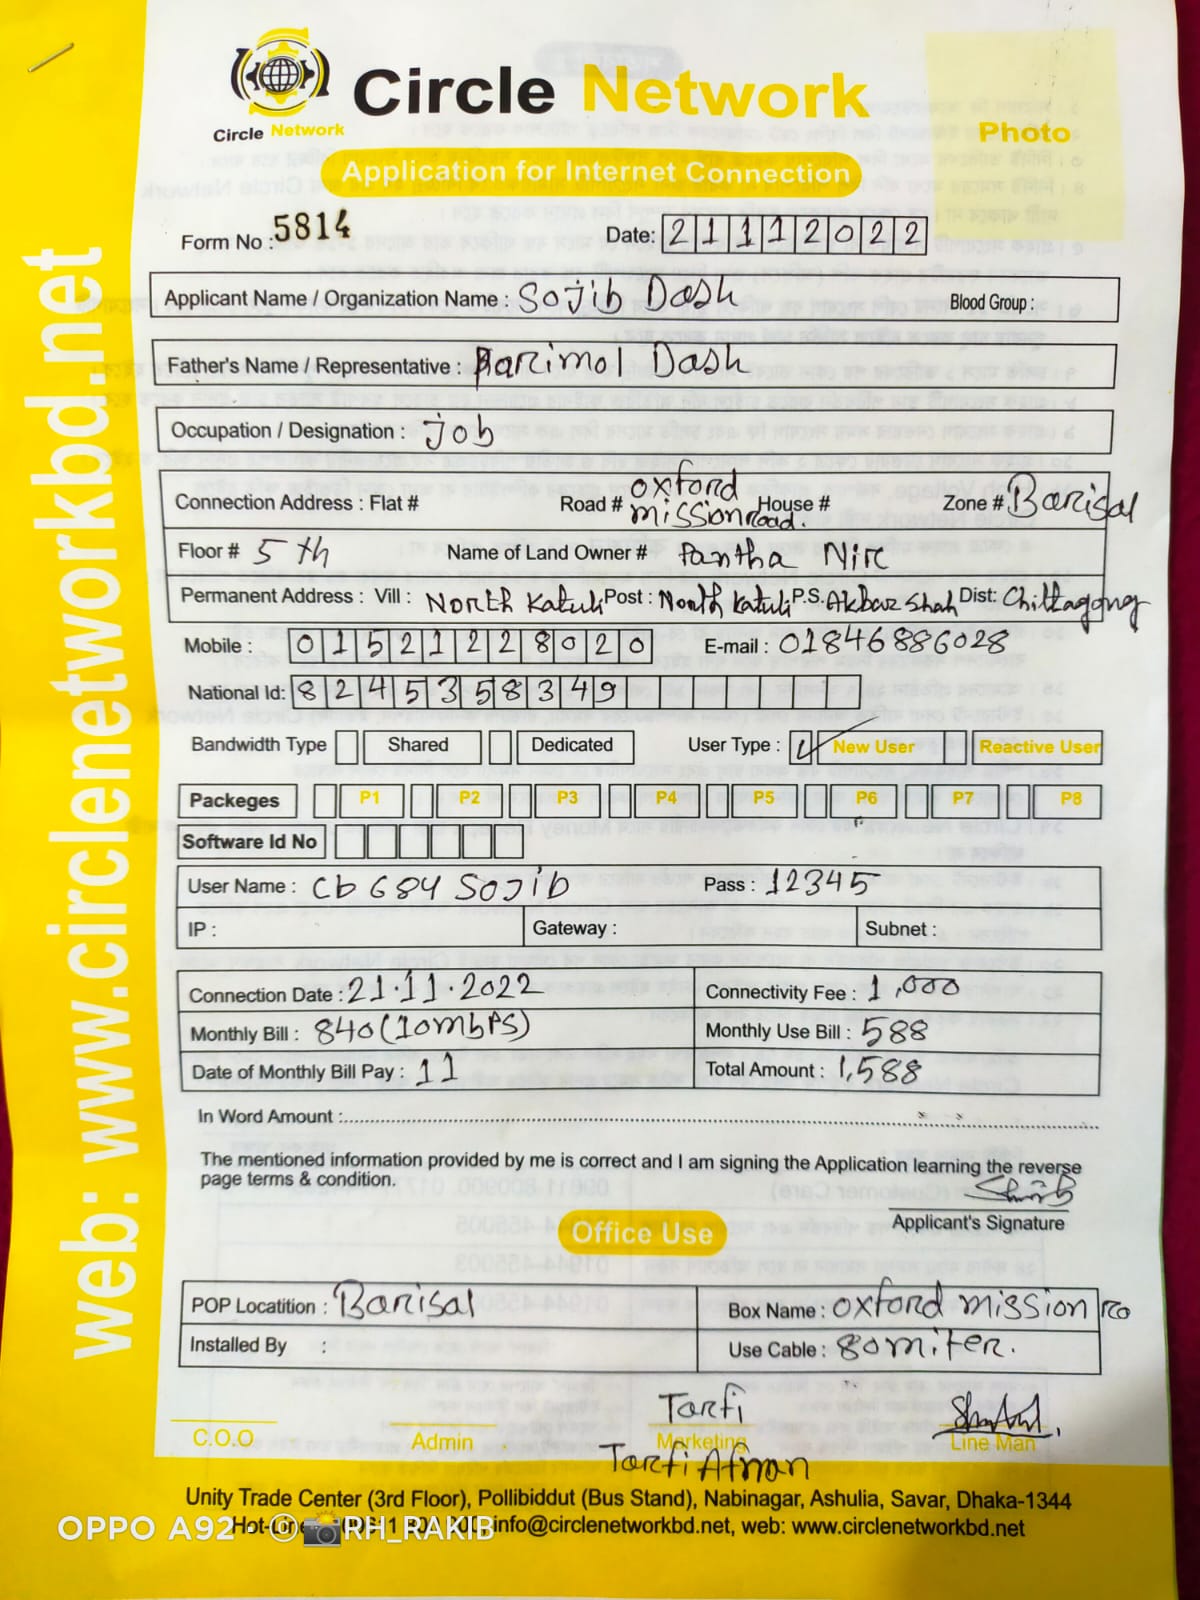 Circle Network
Circle Network
Photo
Application for Internet Connection
Form No : 5814
Date: 21112022
Applicant Name / Organization Name : Sojib Dash Blood Group :
Father's Name / Representative : Parimol Dash
Occupation / Designation : Job
Connection Address : Flat # Road # oxford mission road. House # Zone # Barisal
Floor # 5 th Name of Land Owner # Pantha Nir
Permanent Address : Vill : North Katuli Post : North Katuli P.S. Akbar Shah Dist: Chittagong
Mobile : 01521228020 E-mail : 01846886028
National Id: 8245358349
Bandwidth Type Shared Dedicated User Type : New User Reactive User
Packeges P1 P2 P3 P4 P5 P6 P7 P8
Software Id No
User Name : Cb 684 Sojib Pass : 12345
IP : Gateway : Subnet :
Connection Date : 21.11.2022 Connectivity Fee : 1,000
Monthly Bill : 840 (10mbPS) Monthly Use Bill : 588
Date of Monthly Bill Pay : 11 Total Amount : 1,588
In Word Amount :
The mentioned information provided by me is correct and I am signing the Application learning the reverse
page terms & condition.
Applicant's Signature
Office Use
POP Locatition : Barisal Box Name : oxford mission ro
Installed By : Use Cable : 80 miter.
Tarfi
C.O.O Admin Marketing Line Man
Tarfi Afnan
Unity Trade Center (3rd Floor), Pollibiddut (Bus Stand), Nabinagar, Ashulia, Savar, Dhaka-1344
info@circlenetworkbd.net, web: www.circlenetworkbd.net
OPPO A92 · ©RH_RAKIB
web: www.circlenetworkbd.net